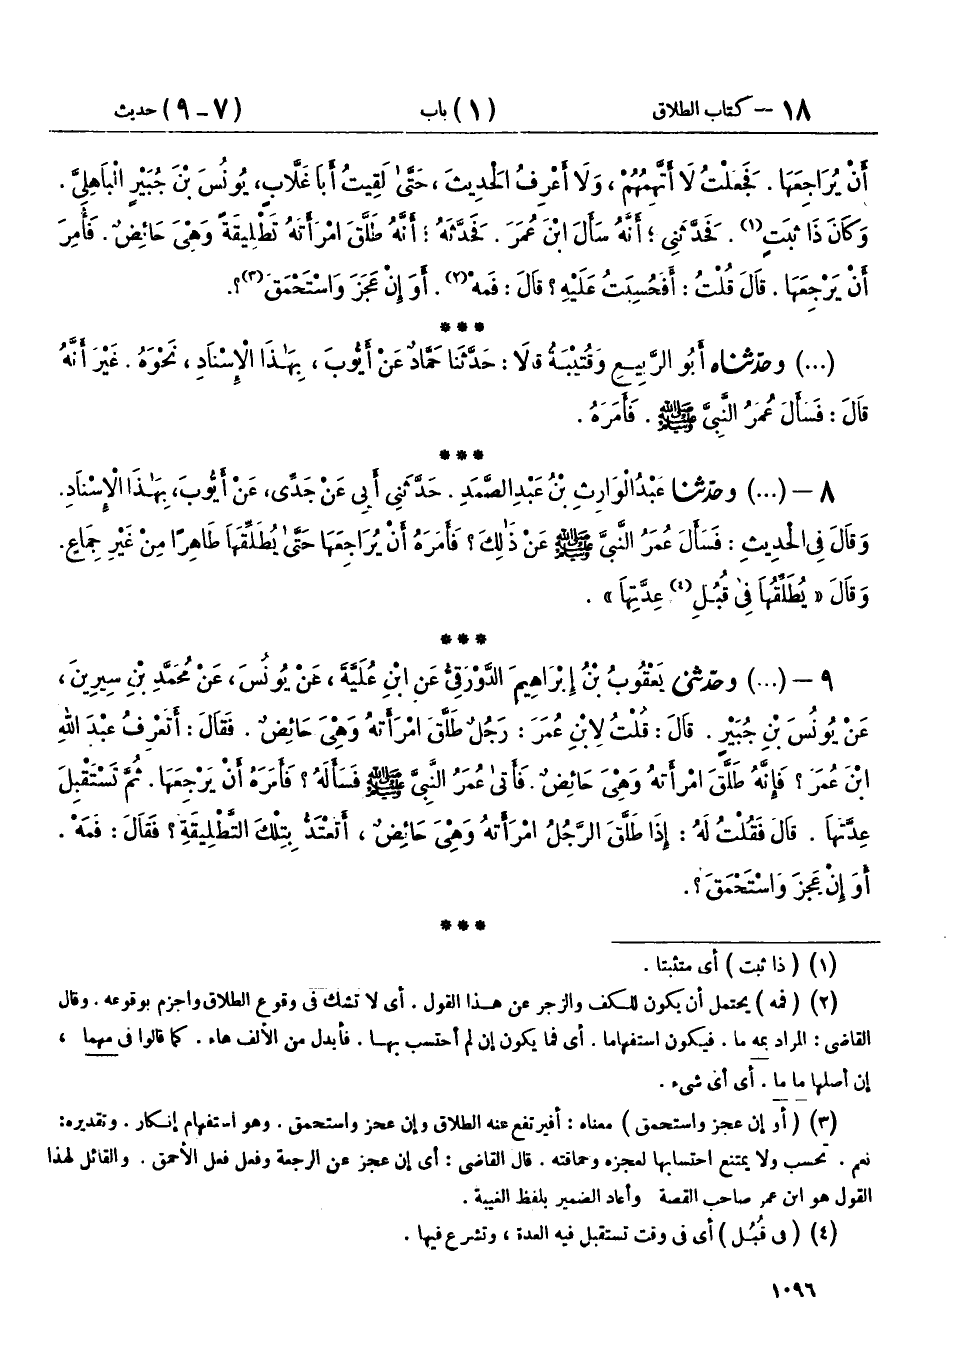 ١٨ – كتاب الطلاق (١) باب (٧-٩) حديث
أَنْ يُرَاجِعَهَا . فَجَعَلْتُ لَا أَتَّهِمُهُمْ ، وَلَا أَعْرِفُ الْحَدِيثَ ، حَتَّىٰ لَقِيتُ أَبَا غَلَّابٍ، يُونُسَ بْنَ جُبَيْرٍ الْبَاهِلِيَّ .
وَكَانَ ذَا ثَبَتٍ(١) . فَحَدَّثَنِي ؛ أَنَّهُ سَأَلَ ابْنَ عُمَرَ . فَحَدَّثَهُ ؛ أَنَّهُ طَلَّقَ امْرَأَتَهُ تَطْلِيقَةً وَهْيَ حَائِضٌ . فَأُمِرَ
أَنْ يَرْجِعَهَا . قَالَ قُلْتُ : أَفَحُسِبَتْ عَلَيْهِ ؟ قَالَ : فَمَهْ(٢) . أَوَ إِنْ عَجَزَ وَاسْتَحْمَقَ(٣)؟.
***
(...) وحَدَّثَنَاه أَبُو الرَّبِيعِ وَقُتَيْبَةُ قَالَا : حَدَّثَنَا حَمَّادٌ عَنْ أَيُّوبَ ، بِهَـٰذَا الْإِسْنَادِ ، نَحْوَهُ . غَيْرَ أَنَّهُ
قَالَ : فَسَأَلَ عُمَرُ النَّبِيَّ ﷺ . فَأَمَرَهُ .
***
٨ – (...) وحَدَّثَنَا عَبْدُ الْوَارِثِ بْنُ عَبْدِ الصَّمَدِ . حَدَّثَنِي أَبِي عَنْ جَدِّي، عَنْ أَيُّوبَ، بِهَـٰذَا الْإِسْنَادِ.
وَقَالَ فِي الْحَدِيثِ : فَسَأَلَ عُمَرُ النَّبِيَّ ﷺ عَنْ ذَٰلِكَ ؟ فَأَمَرَهُ أَنْ يُرَاجِعَهَا حَتَّىٰ يُطَلِّقَهَا طَاهِرًا مِنْ غَيْرِ جِمَاعٍ.
وَقَالَ « يُطَلِّقُهَا فِي قُبُلِ(٤) عِدَّتِهَا » .
***
٩ – (...) وحَدَّثَنِي يَعْقُوبُ بْنُ إِبْرَاهِيمَ الدَّوْرَقِيُّ عَنِ ابْنِ عُلَيَّةَ ، عَنْ يُونُسَ، عَنْ مُحَمَّدِ بْنِ سِيرِينَ ،
عَنْ يُونُسَ بْنِ جُبَيْرٍ . قَالَ : قُلْتُ لِابْنِ عُمَرَ : رَجُلٌ طَلَّقَ امْرَأَتَهُ وَهْيَ حَائِضٌ . فَقَالَ : أَتَعْرِفُ عَبْدَ اللهِ
ابْنَ عُمَرَ ؟ فَإِنَّهُ طَلَّقَ امْرَأَتَهُ وَهْيَ حَائِضٌ . فَأَتَىٰ عُمَرُ النَّبِيَّ ﷺ فَسَأَلَهُ ؟ فَأَمَرَهُ أَنْ يَرْجِعَهَا . ثُمَّ تَسْتَقْبِلَ
عِدَّتَهَا . قَالَ فَقُلْتُ لَهُ : إِذَا طَلَّقَ الرَّجُلُ امْرَأَتَهُ وَهْيَ حَائِضٌ ، أَتَعْتَدُّ بِتِلْكَ التَّطْلِيقَةِ ؟ فَقَالَ : فَمَهْ .
أَوَ إِنْ عَجَزَ وَاسْتَحْمَقَ ؟.
***
(١) ( ذا ثبت ) أى متثبتا .
(٢) ( فمه ) يحتمل أن يكون للكف والزجر عن هذا القول . أى لا تشك فى وقوع الطلاق واجزم بوقوعه . وقال
القاضى : المراد بمه ما . فيكون استفهاما . أى فما يكون إن لم أحتسب بها . فأبدل من الألف هاء . كما قالوا فى مهما ،
إن أصلها ما ما . أى أى شىء .
(٣) ( أو إن عجز واستحمق ) معناه : أفيرتفع عنه الطلاق وإن عجز واستحمق . وهو استفهام إنكار . وتقديره:
نعم . تحسب ولا يمتنع احتسابها لعجزه وحماقته . قال القاضى : أى إن عجز عن الرجعة وفعل فعل الأحمق . والقائل لهذا
القول هو ابن عمر صاحب القصة وأعاد الضمير بلفظ الغيبة .
(٤) ( فى قُبُل ) أى فى وقت تستقبل فيه العدة ، وتشرع فيها .
١٠٩٦